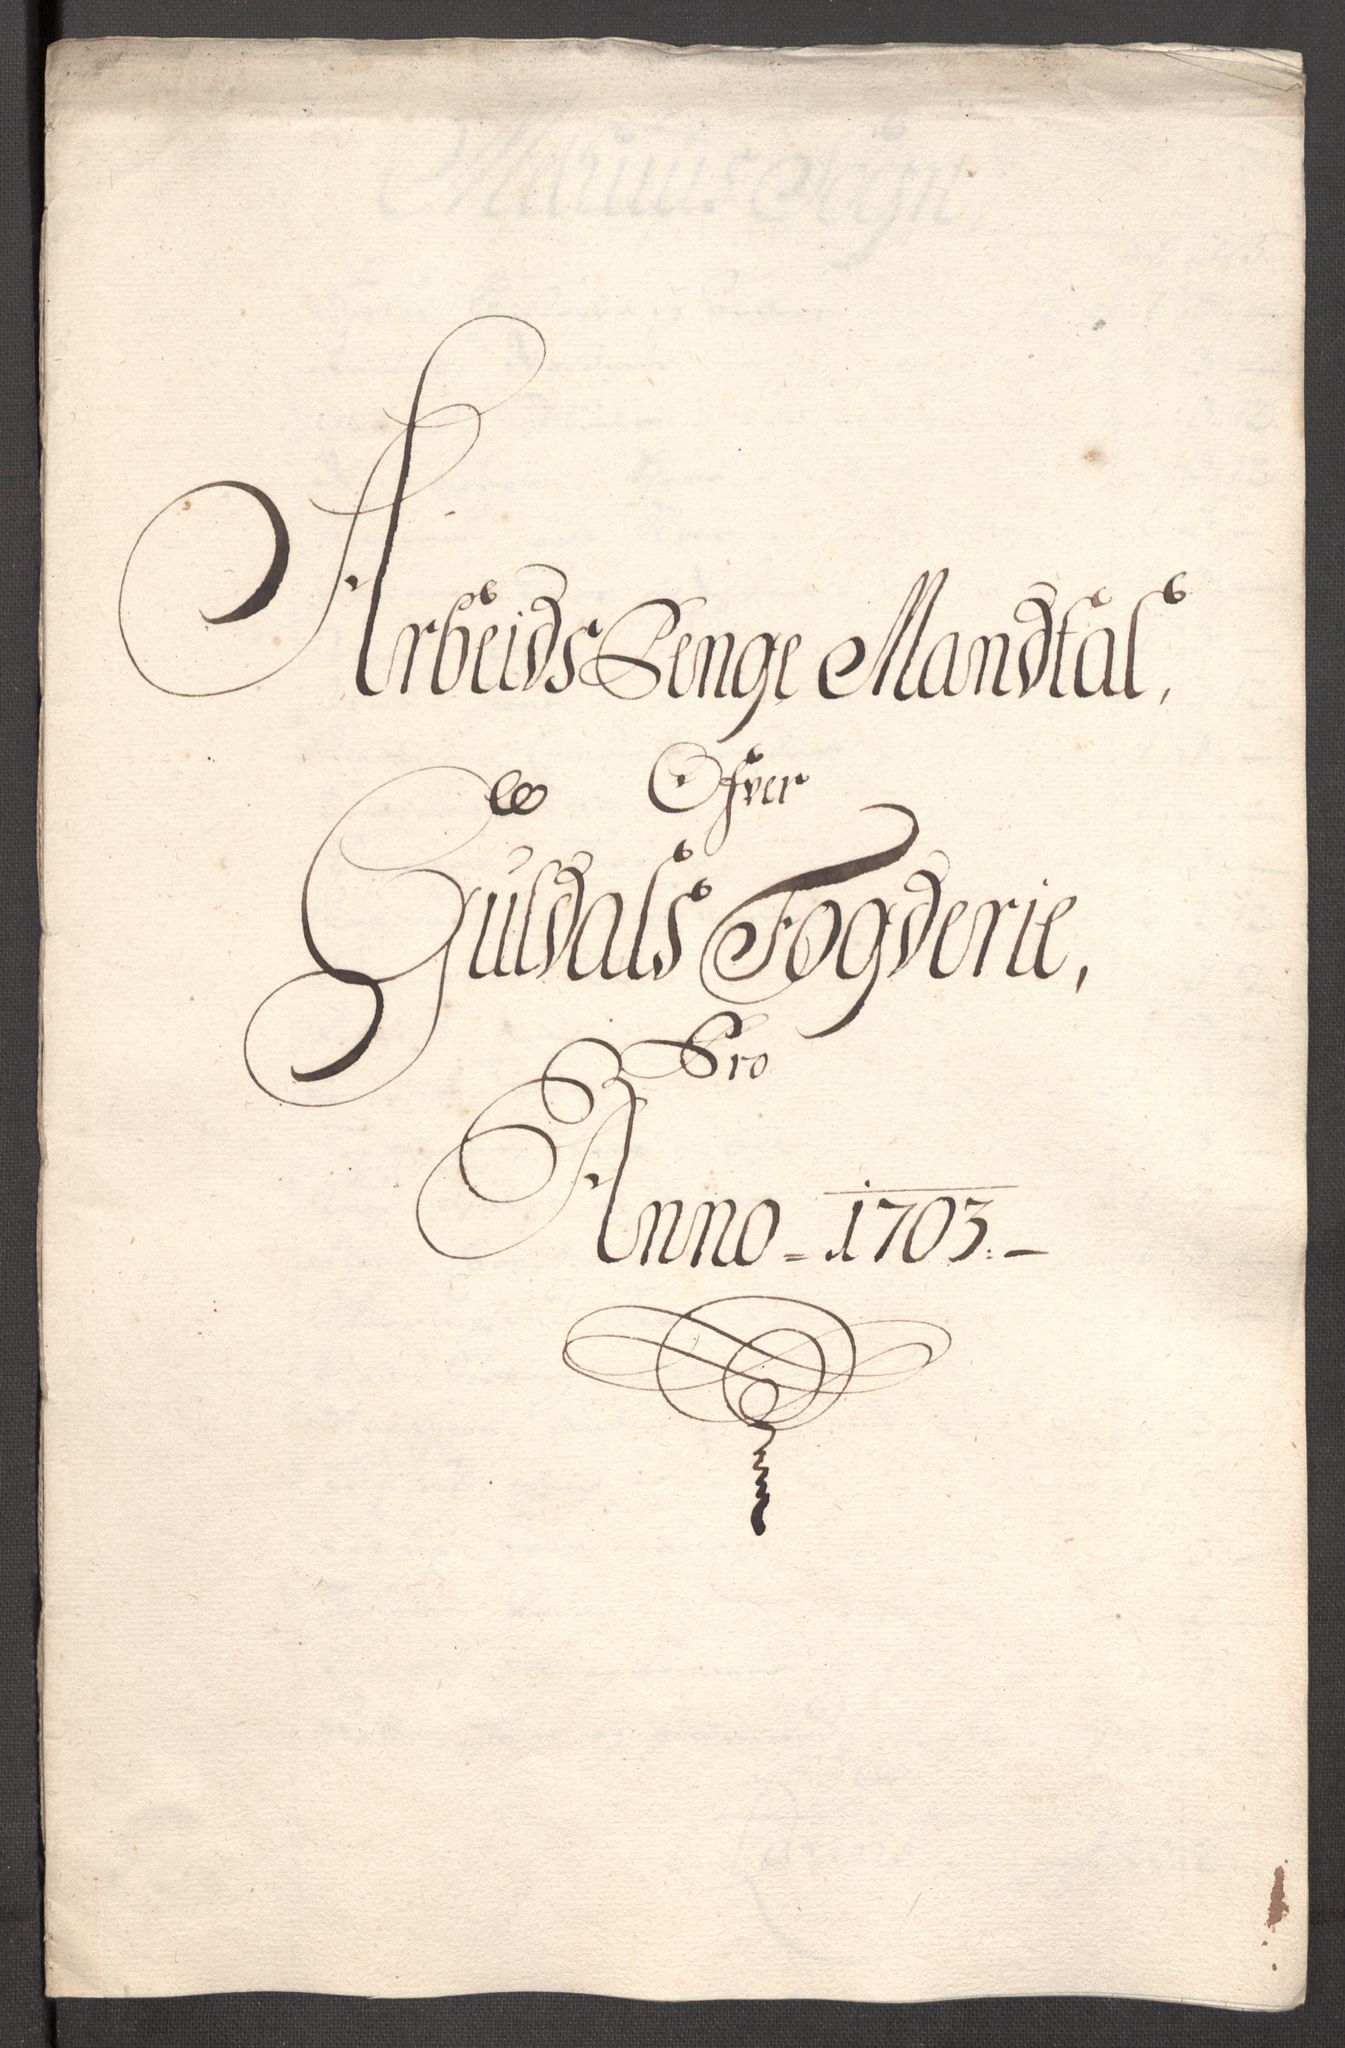 Arbeids Penge Mandtal,
Ofver
Guldals Fogderie,
Pro
Anno - 1703.-